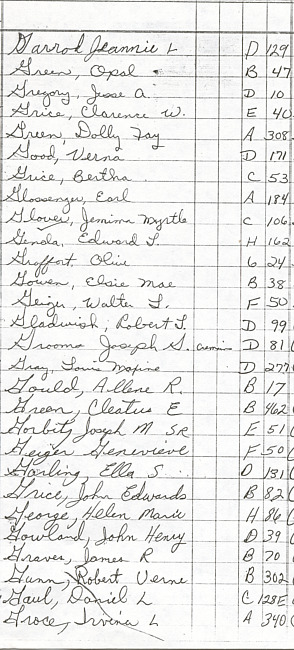 Garrod Jeannie L D 129
Green, Opal B 47
Gregory, Jesse A. D 10
Grice, Clarence W. E 40
Green, Dolly Fay A 308
Good, Verna D 171
Grice, Bertha C 53
Glossenger, Earl A 184
Glover, Jemima Myrtle C 106
Genda, Edward F. H 162
Graffort Olive G 24
Gowen, Elsie Mae B 38
Geiger, Walter F. F 50
Gladwish, Robert F. D 99
Grooms Joseph S. D 81
Gray, Maxine D 277
Gould, Allene R. B 17
Green, Cleatus E B 462
Gorbitt, Joseph M SR E 51
Geiger Genevieve F 50
Garling, Ella S D 131
Grice, John Edwards B 82
George, Helen Marie H 86
Gowland, John Henry D 39
Graves, James R B 70
Gunn, Robert Verne B 302
Gaul, Daniel L C 128E
Groce, Irvina L A 340